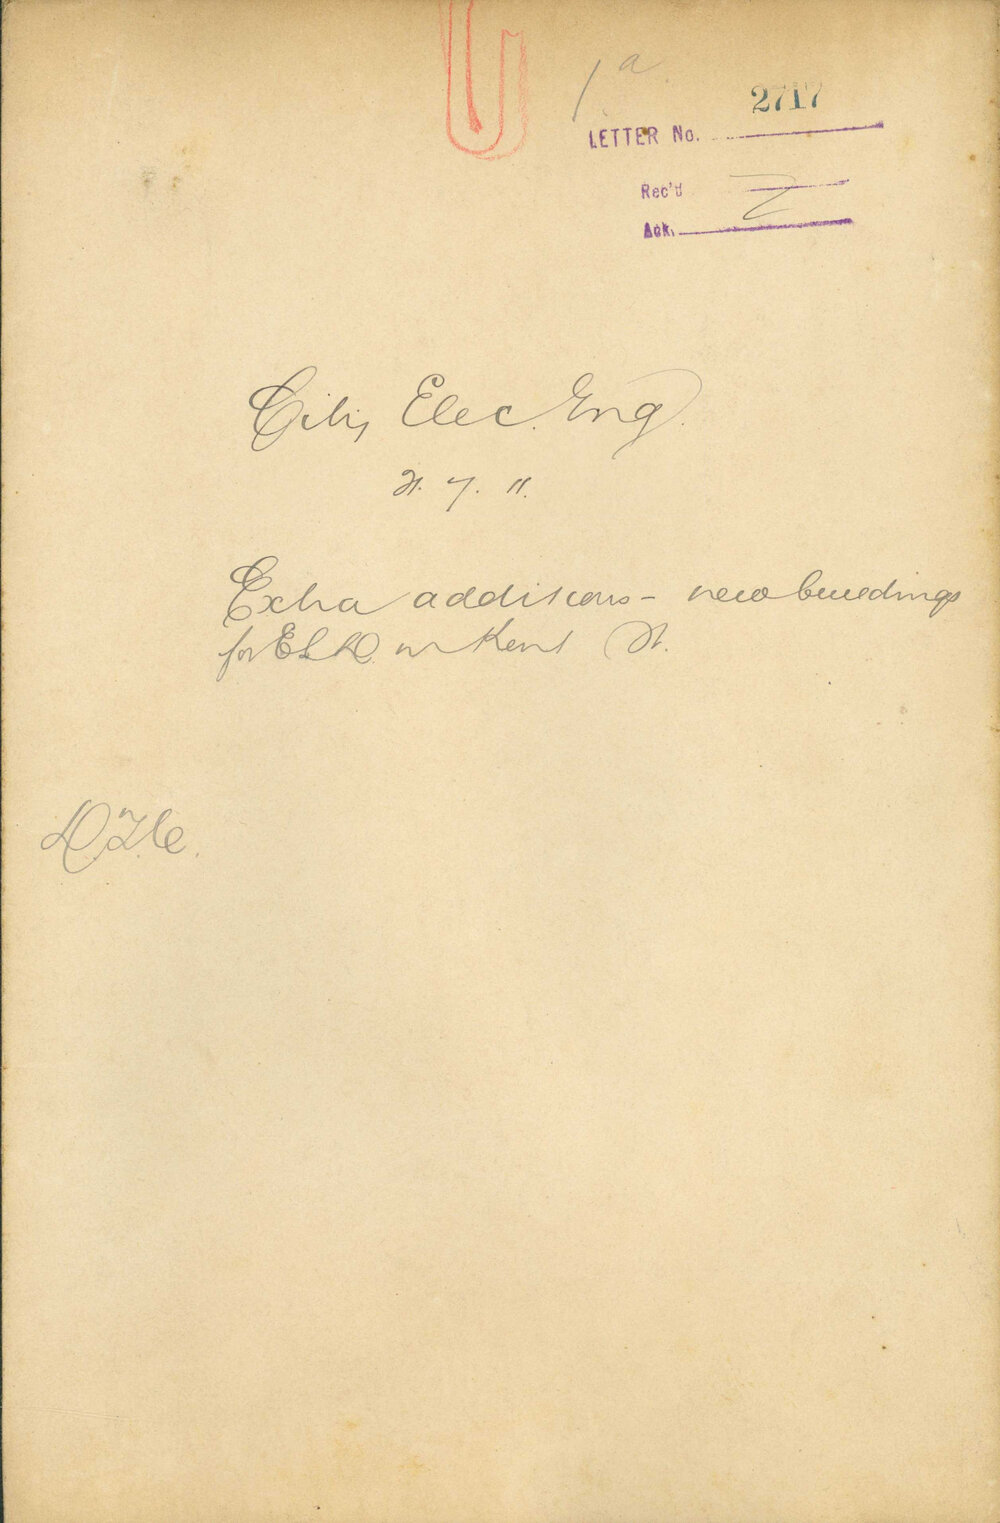 1a
2717
LETTER No.
Rec'd
Ack.
City Elec. Eng.
21. 7. 11.
Extra additions - new buildings
for E L D. in Kent St.